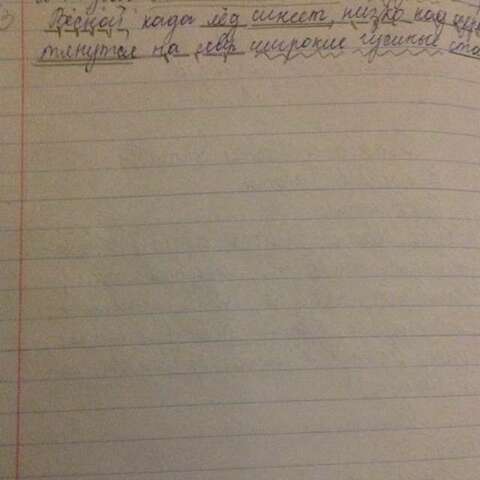 3 Весной, када лёд синеет, низко над
тянутся на север широкие гусиные ста